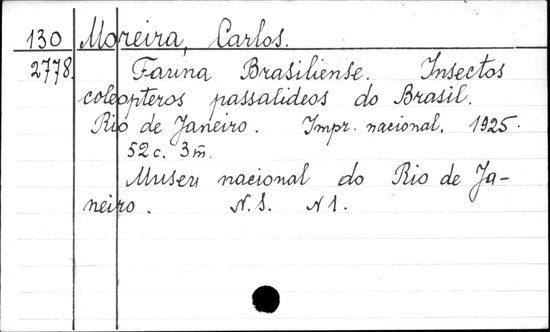 130 Moreira, Carlos.
2778. Fauna Brasiliense. Insectos
coleopteros passalideos do Brasil.
Rio de Janeiro. Impr. nacional. 1925.
52 c. 3 m̄.
Museu nacional do Rio de Ja-
neiro. N.S. N 1.